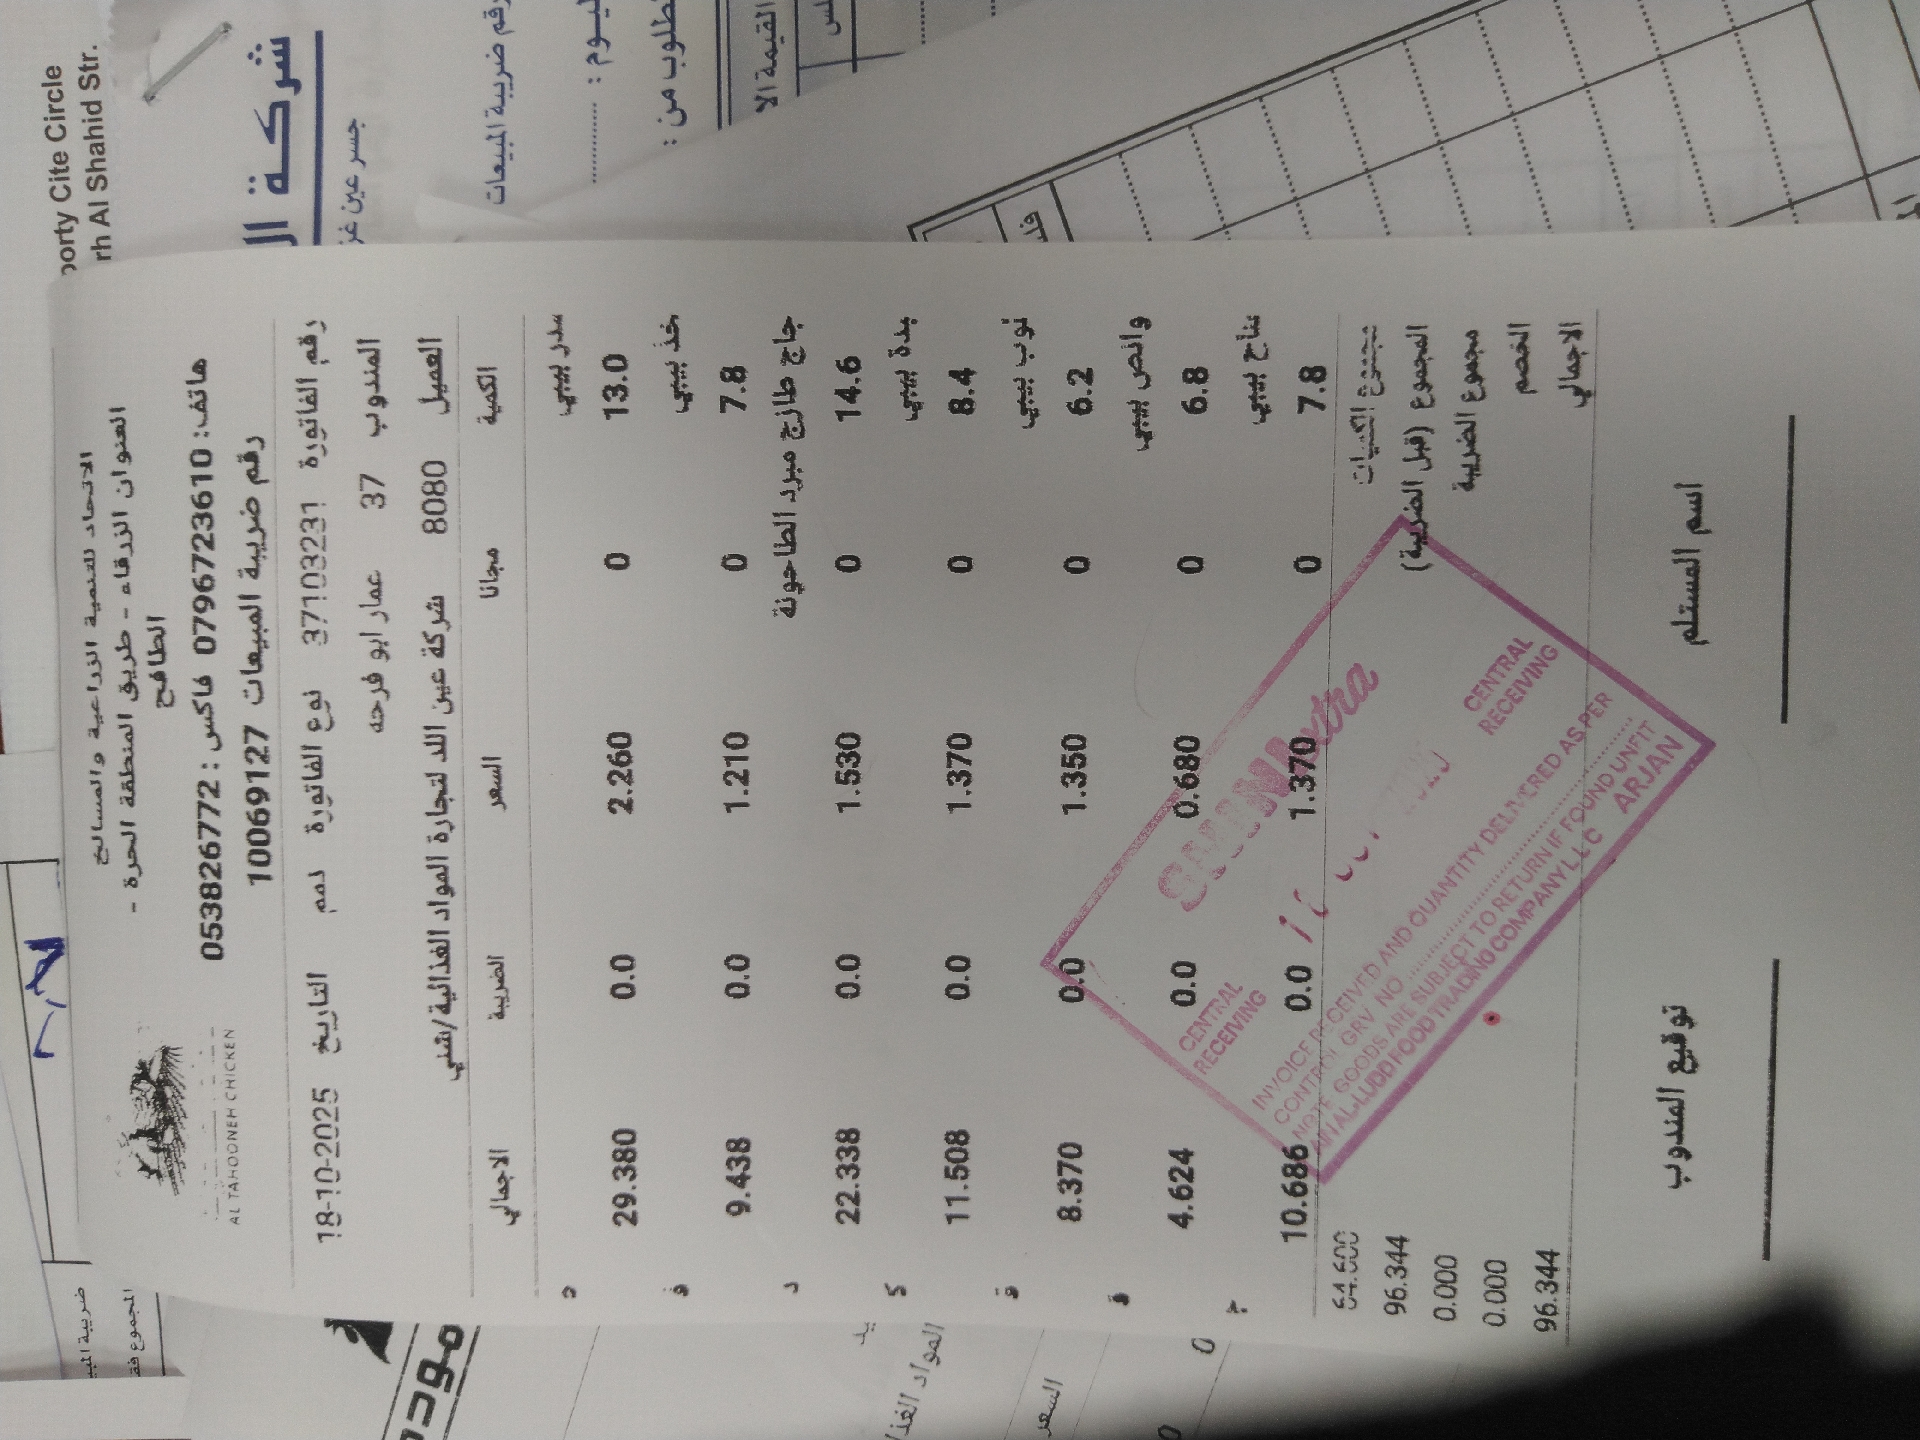 الاتحاد للتنمية الزراعية والمسالخ
العنوان الزرقاء - طريق المنطقة الحرة -
الطافح
هاتف: 0796723610 فاكس: 0538226772
رقم ضريبة المبيعات 10069127
AL TAHOONEH CHICKEN
رقم الفاتورة 37103231 نوع الفاتورة ذمم التاريخ 18-10-2025
المندوب 37 عمار ابو فرحه
العميل 8080 شركة عين اللد لتجارة المواد الغذائية/شني
الكمية مجانا السعر الضريبة الاجمالي
سدر بيبي
13.0 0 2.260 0.0 29.380
فخذ بيبي
7.8 0 1.210 0.0 9.438
دجاج طازج مبرد الطاحونة
14.6 0 1.530 0.0 22.338
كبدة بيبي
8.4 0 1.370 0.0 11.508
بيبي
6.2 0 1.350 0.0 8.370
قوانص بيبي
6.8 0 0.680 0.0 4.624
جناح بيبي
7.8 0 1.370 0.0 10.686
مجموع الكميات 64.600
المجموع (قبل الضريبة) 96.344
مجموع الضريبة 0.000
الخصم 0.000
الاجمالي 96.344
اسم المستلم توقيع المندوب
xtra
CENTRAL RECEIVING
CENTRAL RECEIVING
INVOICE RECEIVED AND QUANTITY DELIVERED AS PER
CONTROL GRV NO
NOTE GOODS ARE SUBJECT TO RETURN IF FOUND UNFIT
AL-LUDD FOOD TRADING COMPANY L L C ARJAN
Cite Circle
Al Shahid Str.
شركة
جسر عين
رقم ضريبة المبيعات
من :
القيمة
المواد
السعر
0
ضريبة
المجموع